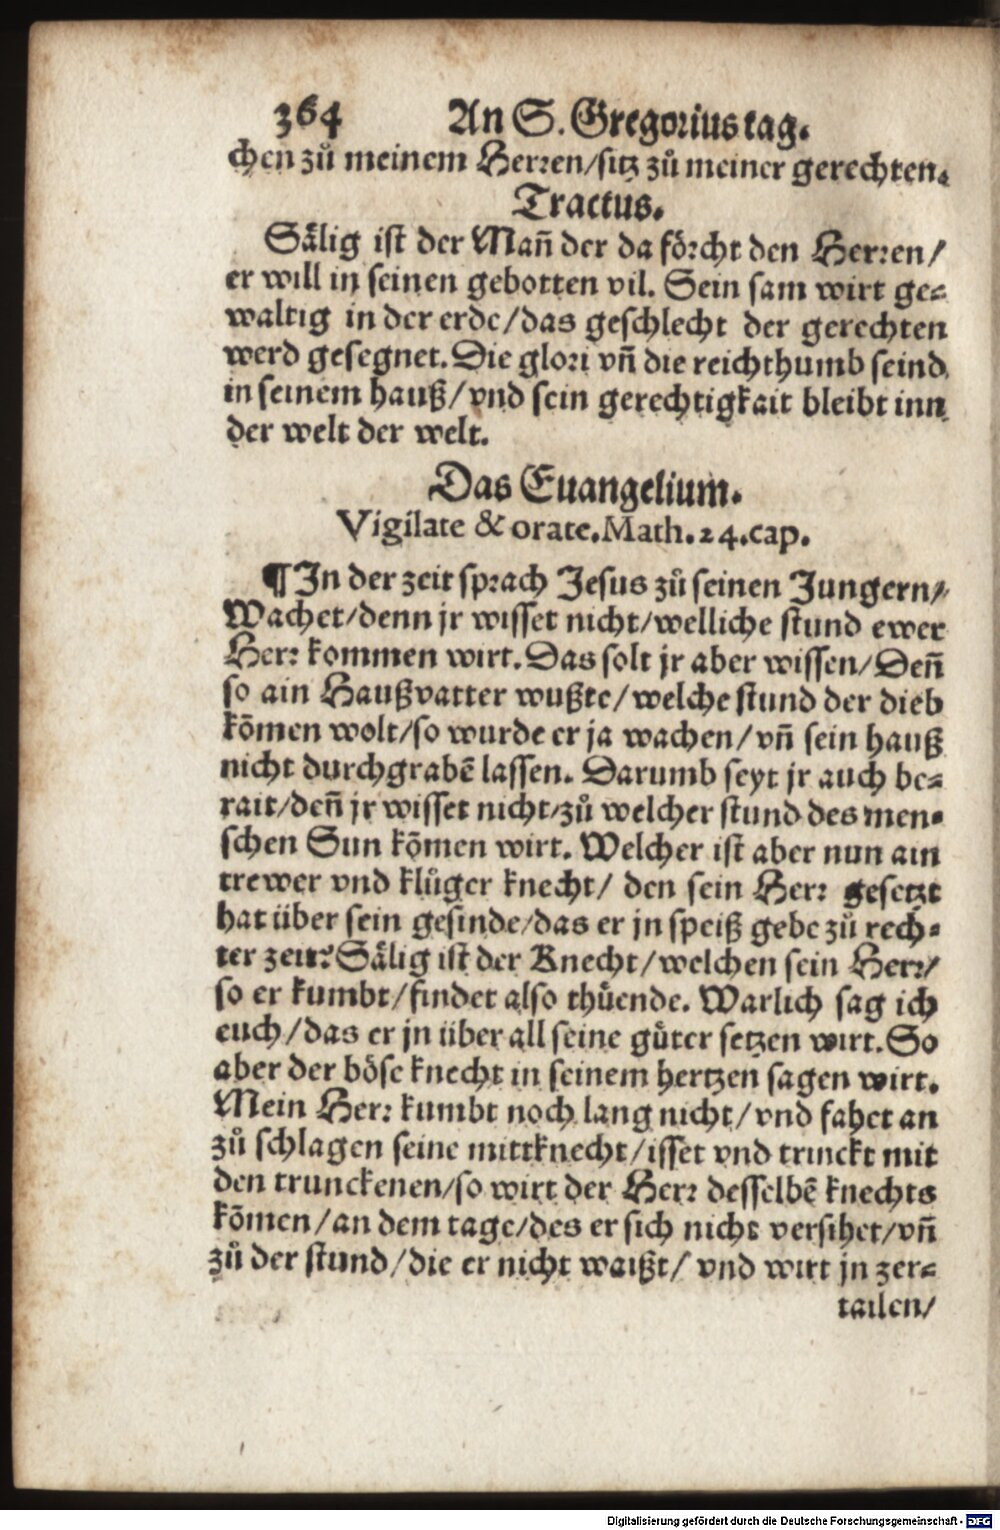 364 An S. Gregorius tag.
chen zů meinem Herren/sitz zů meiner gerechten.
Tractus.
Sälig ist der Mañ der da förcht den Herren/
er will in seinen gebotten vil. Sein sam wirt ge=
waltig in der erde/das geschlecht der gerechten
werd gesegnet. Die glori vñ die reichthumb seind
in seinem hauß/vnd sein gerechtigkait bleibt inn
der welt der welt.
Das Euangelium.
Vigilate & orate. Math. 24. cap.
¶ In der zeit sprach Jesus zů seinen Jungern/
Wachet/denn jr wisset nicht/welliche stund ewer
Herr kommen wirt. Das solt jr aber wissen/Deñ
so ain Haußvatter wußte/welche stund der dieb
kõmen wolt/so wurde er ja wachen/vñ sein hauß
nicht durchgrabẽ lassen. Darumb seyt jr auch be=
rait/deñ jr wisset nicht/zů welcher stund des men=
schen Sun kõmen wirt. Welcher ist aber nun ain
trewer vnd klůger knecht/ den sein Herr gesetzt
hat über sein gesinde/das er jn speiß gebe zů rech=
ter zeit? Sälig ist der Knecht/welchen sein Herr/
so er kumbt/findet also thůende. Warlich sag ich
euch/das er jn über all seine gůter setzen wirt. So
aber der böse knecht in seinem hertzen sagen wirt.
Mein Herr kumbt noch lang nicht/vnd fahet an
zů schlagen seine mittknecht/isset vnd trinckt mit
den trunckenen/so wirt der Herr desselbẽ knechts
kõmen/an dem tage/des er sich nicht versihet/vñ
zů der stund/die er nicht waißt/ vnd wirt jn zer=
tailen/
Digitalisierung gefördert durch die Deutsche Forschungsgemeinschaft - DFG